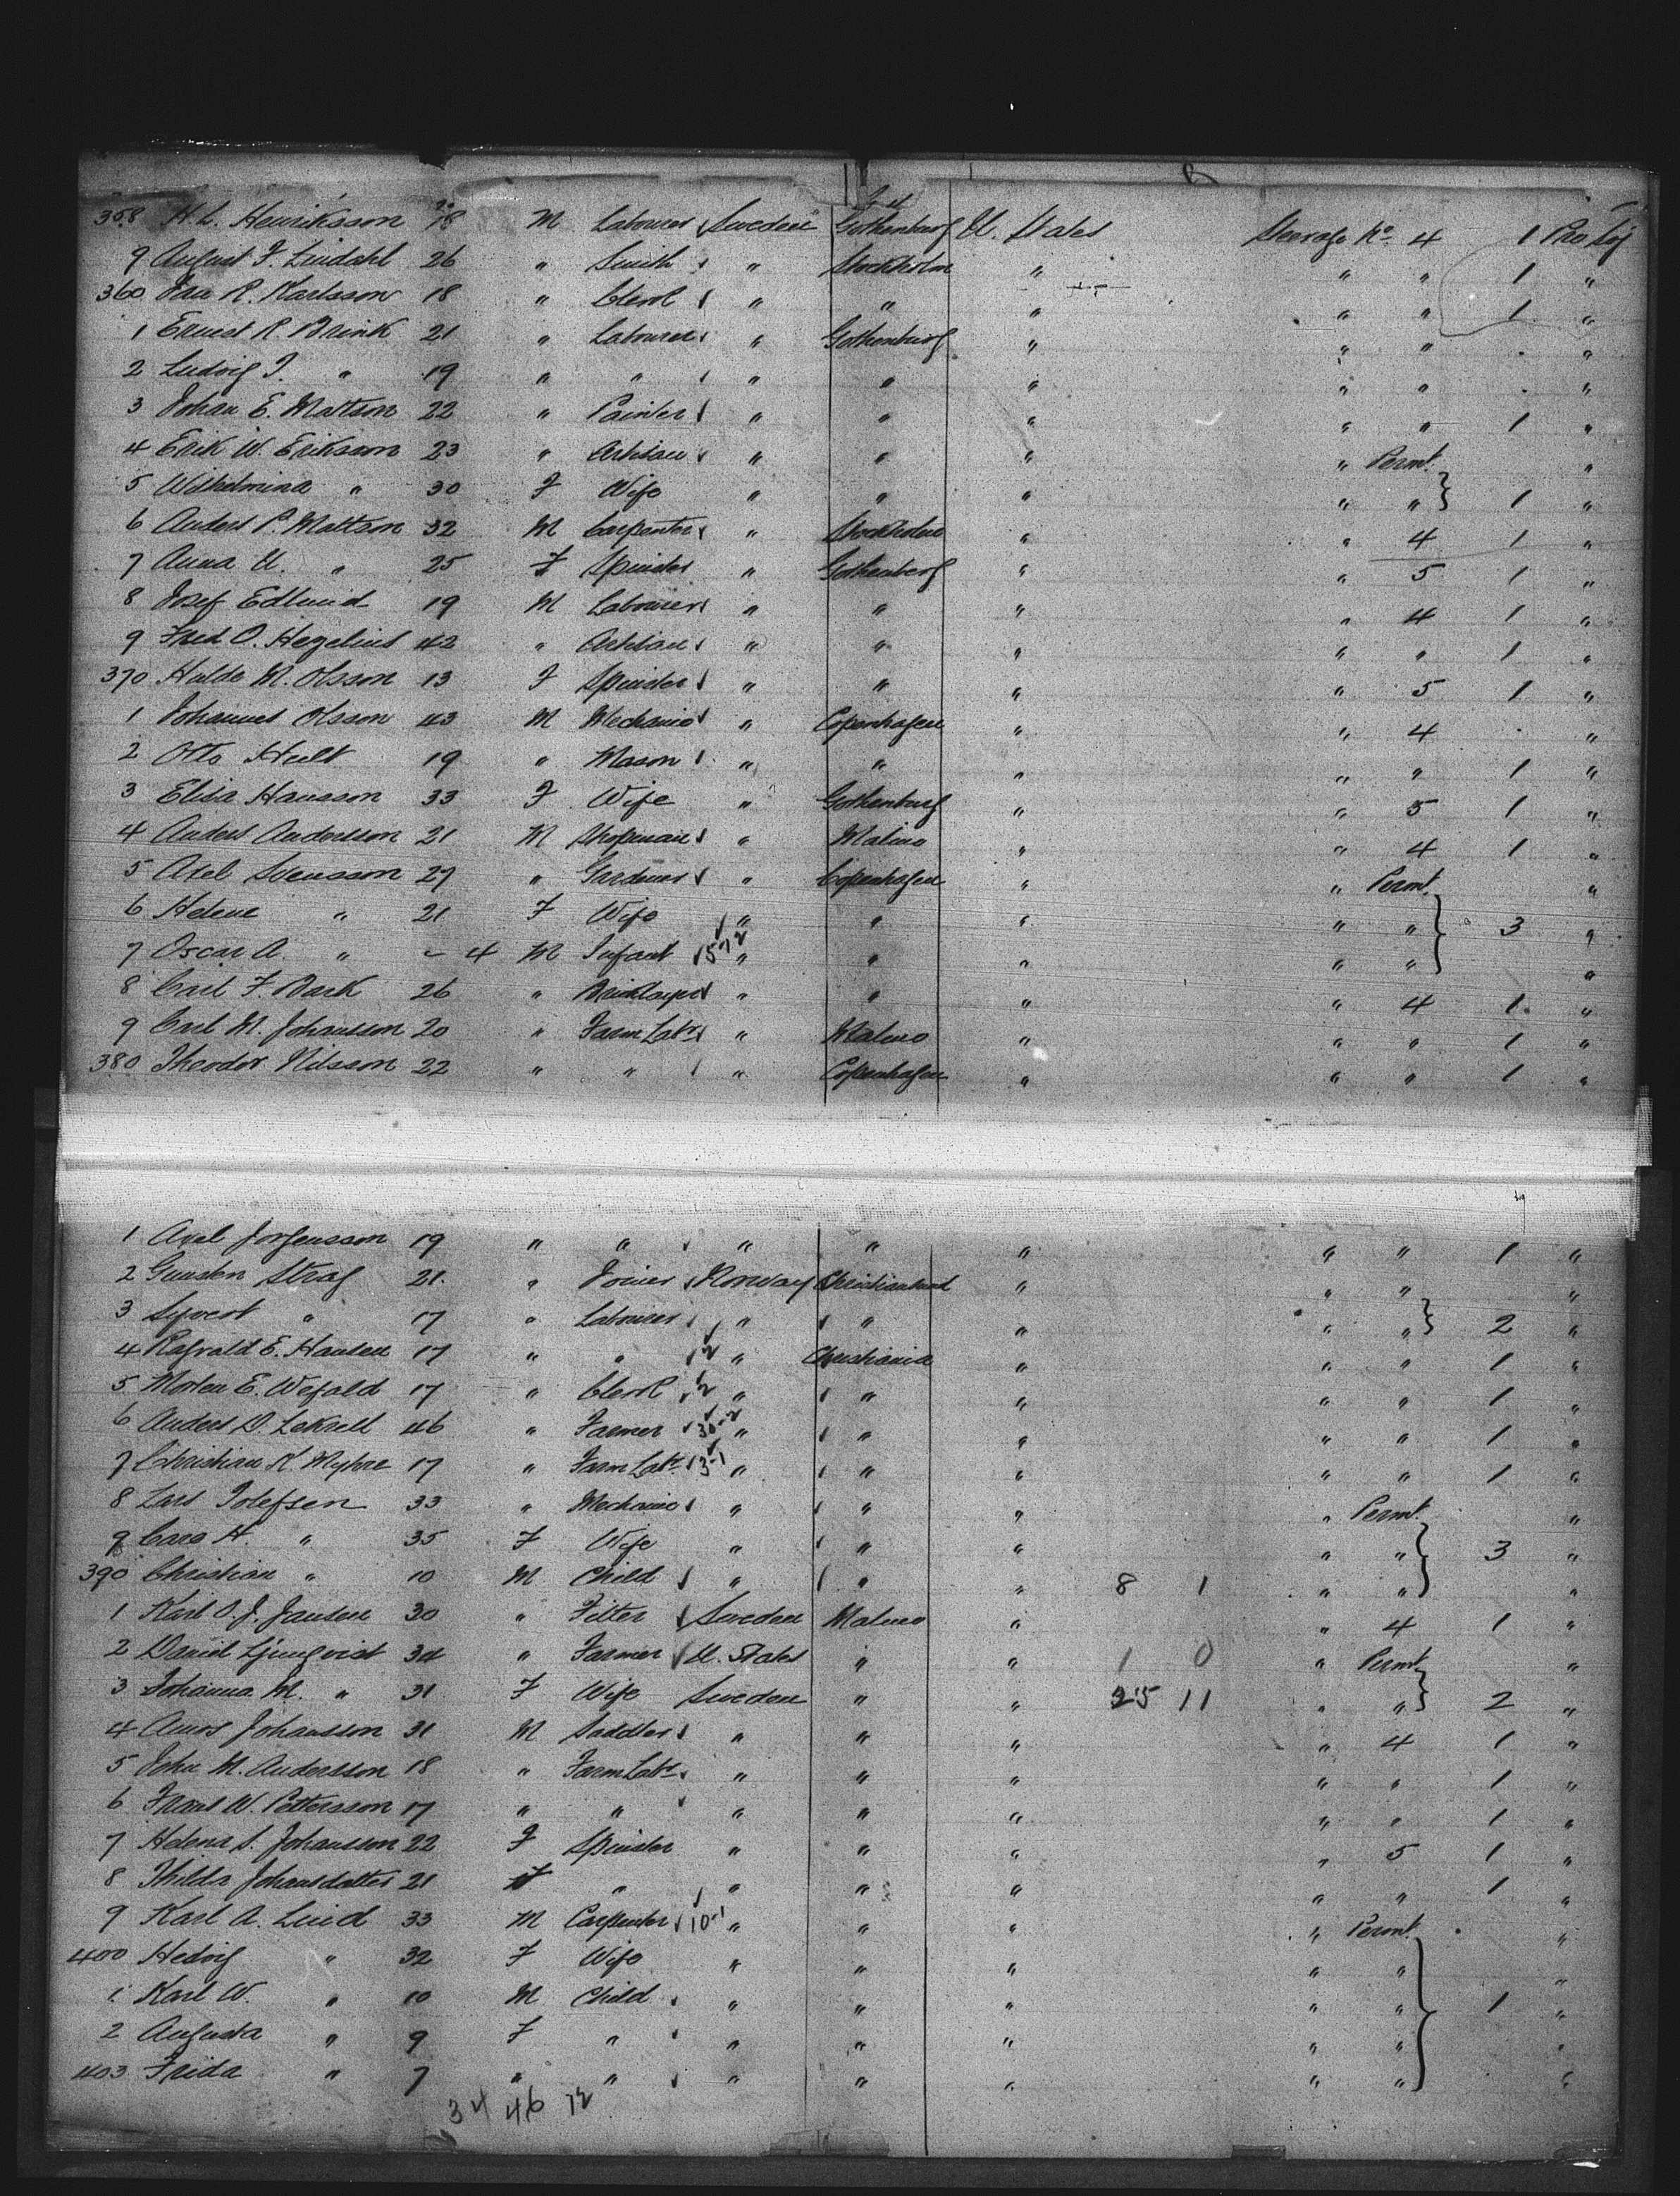 358 H. L. Henriksson 18 M Labourer Sweden Gothenburg U. States Steerage No. 4 1 Pro Soj
9 August F. Lindahl 26 " Smith " Stockholm " " " 1 "
360 R. Karlsson 18 " Clerk " " " " " 1 "
1 Ernest R. Brink 21 " Labourer " Gothenburg " " " . "
2 Ludvig J. " 19 " " " " " " " . "
3 Johan E. Mattson 22 " Painter " " " " " 1 "
4 Erik W. Eriksson 23 " Artisan " " " " Permt. "
5 Wilhelmina " 30 F Wife " " " " " } 1 "
6 Anders P. Mattson 32 M Carpenter " Stockholm " " 4 1 "
7 Anna U. " 25 F Spinster " Gothenberg " " 5 1 "
8 Josef Edlund 19 M Labourer " " " " 4 1 "
9 Fred O. Hezelius 42 " Artisan " " " " " 1 "
370 Hulde M. Olsson 13 F Spinster " " " " 5 1 "
1 Johannes Olsson 43 M Mechanic " Copenhagen " " 4 . "
2 Otto Hult 19 " Mason " " " " " 1 "
3 Elisa Hansson 33 F Wife " Gothenburg " " 5 1 "
4 Anders Andersson 21 M Shopman " Malmo " " 4 1 "
5 Axel Svensson 27 " Gardener " Copenhagen " " Permt. "
6 Helene " 21 F Wife " " " " " } 3 "
7 Oscar A. " - 4 M Infant " " " " " "
8 Carl F. Bark 26 " Bricklayer " " " " 4 1 "
9 Carl M. Johansson 20 " Farm Labr " Malmo " " " 1 "
380 Theodor Nilsson 22 " " " Copenhagen " " " 1 "
1 Axel Jorgensson 19 " " " " " " " 1 "
2 Gunsten Stray 21 " Joiner Norway Christiansand " " " "
3 Syvert " 17 " Labourer " " " " " } 2 "
4 Ragvald E. Hansen 17 " " " Christiania " " " 1 "
5 Morten E. Wefald 17 " Clerk " " " " " 1 "
6 Anders D. 46 " Farmer 30-2 " " " " " 1 "
7 Christian K. Myhre 17 " Farm Labr 3-1 " " " " " 1 "
8 Lars Tolefsen 33 " Mechanic " " " " Permt. "
9 H. " 35 F Wife " " " " " } 3 "
390 Christian " 10 M Child " " " 8 1 " " "
1 Karl O. J. Jansen 30 " Fitter Sweden Malmo " " 4 1 "
2 Daniel Ljungvist 34 " Farmer U. States " " 1 0 " Permt. "
3 Johanna M. " 31 F Wife Sweden " " 25 11 " " } 2 "
4 Amos Johansson 31 M Saddler " " " " 4 1 "
5 John M. Andersson 18 " Farm Labr " " " " " 1 "
6 Frans W. Pettersson 17 " " " " " " " 1 "
7 Helena S. Johansson 22 F Spinster " " " " 5 1 "
8 Thilda Johansdatter 21 F " " " " " " 1 "
9 Karl A. Lind 33 M Carpenter 10-1 " " " " Permt. "
400 Hedvig " 32 F Wife " " " " " "
1 Karl W. " 10 M Child " " " " " } 1 "
2 Augusta " 9 F " " " " " " "
403 Frida " 7 " " " " " " " "
34 46 12